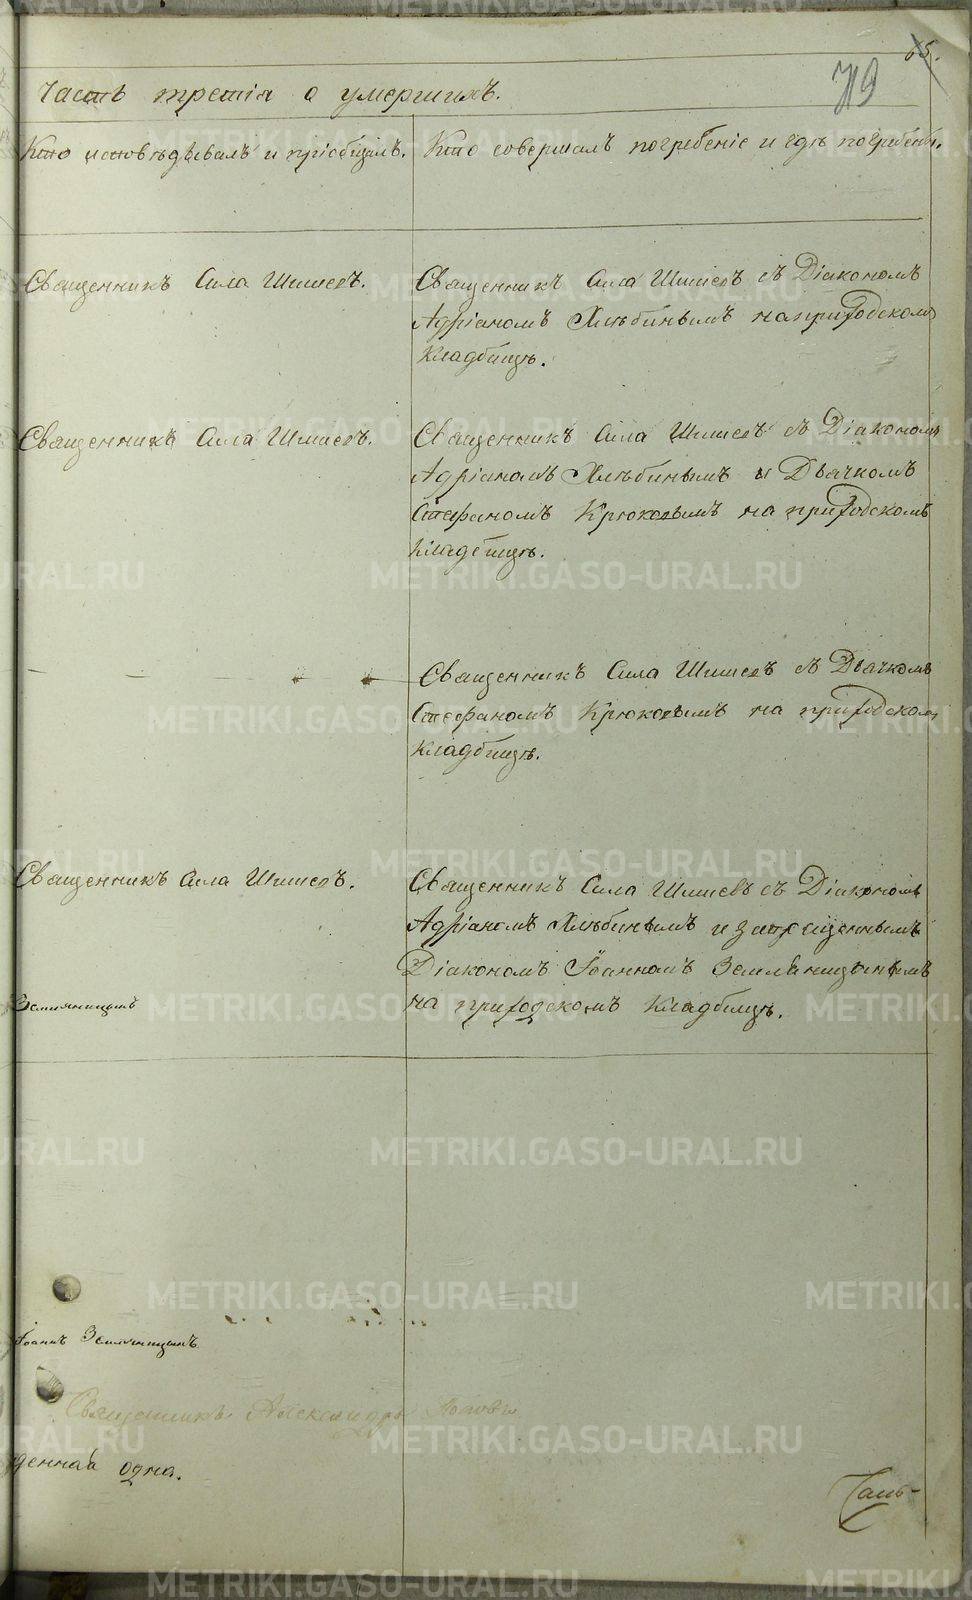 65.
719
Часть третія о умершихъ.
Кто исповѣдывалъ и пріобщалъ.
Кто совершалъ погребеніе и гдѣ погребены.
Священникъ Сила Шишевъ.
Священникъ Сила Шишевъ съ Діакономъ
Адріаномъ Хлѣбинымъ на приходскомъ
Кладбищѣ.
Священникъ Сила Шишевъ.
Священникъ Сила Шишевъ съ Діакономъ
Адріаномъ Хлѣбинымъ и Дьячкомъ
Стефаномъ Крюковымъ на приходскомъ
Кладбищѣ.
Священникъ Сила Шишевъ съ Дьячкомъ
Стефаномъ Крюковымъ на приходскомъ
Кладбищѣ.
Священникъ Сила Шишевъ.
Священникъ Сила Шишевъ съ Діакономъ
Адріаномъ Хлѣбинымъ и запрещеннымъ
Діакономъ Іоанномъ Земляницынымъ
на приходскомъ Кладбищѣ.
Земляницынъ
Іоаннъ Земляницынъ
Священникъ Александръ Поповъ
денная одна.
Часть
METRIKI.GASO-URAL.RU